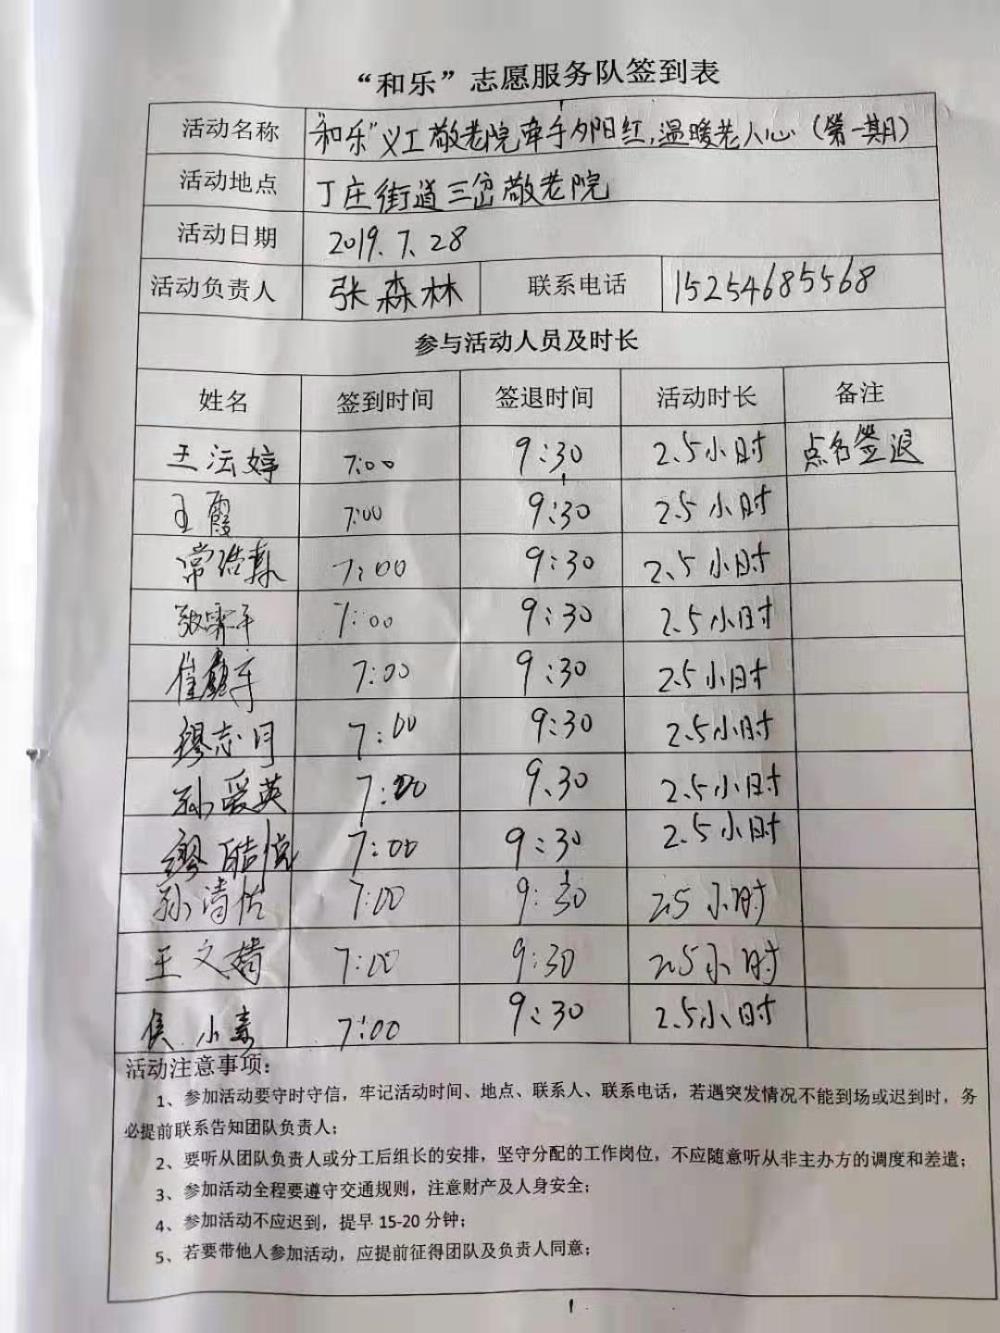 “和乐”志愿服务队签到表
活动名称 “和乐”义工敬老院牵手夕阳红,温暖老人心(第一期)
活动地点 丁庄街道三岔敬老院
活动日期 2019.7.28
活动负责人 张森林 联系电话 15254685568
参与活动人员及时长
姓名 签到时间 签退时间 活动时长 备注
王沄婷 7:00 9:30 2.5小时 点名签退
王霞 7:00 9:30 2.5小时
常浩森 7:00 9:30 2.5小时
7:00 9:30 2.5小时
崔 7:00 9:30 2.5小时
缪志月 7:00 9:30 2.5小时
孙爱英 7:00 9.30 2.5小时
缪皓悦 7:00 9:30 2.5小时
孙清怡 7:00 9:30 2.5小时
王文婧 7:00 9:30 2.5小时
侯小素 7:00 9:30 2.5小时
活动注意事项:
1、参加活动要守时守信,牢记活动时间、地点、联系人、联系电话,若遇突发情况不能到场或迟到时,务
必提前联系告知团队负责人;
2、要听从团队负责人或分工后组长的安排,坚守分配的工作岗位,不应随意听从非主办方的调度和差遣;
3、参加活动全程要遵守交通规则,注意财产及人身安全;
4、参加活动不应迟到,提早 15-20 分钟;
5、若要带他人参加活动,应提前征得团队及负责人同意;